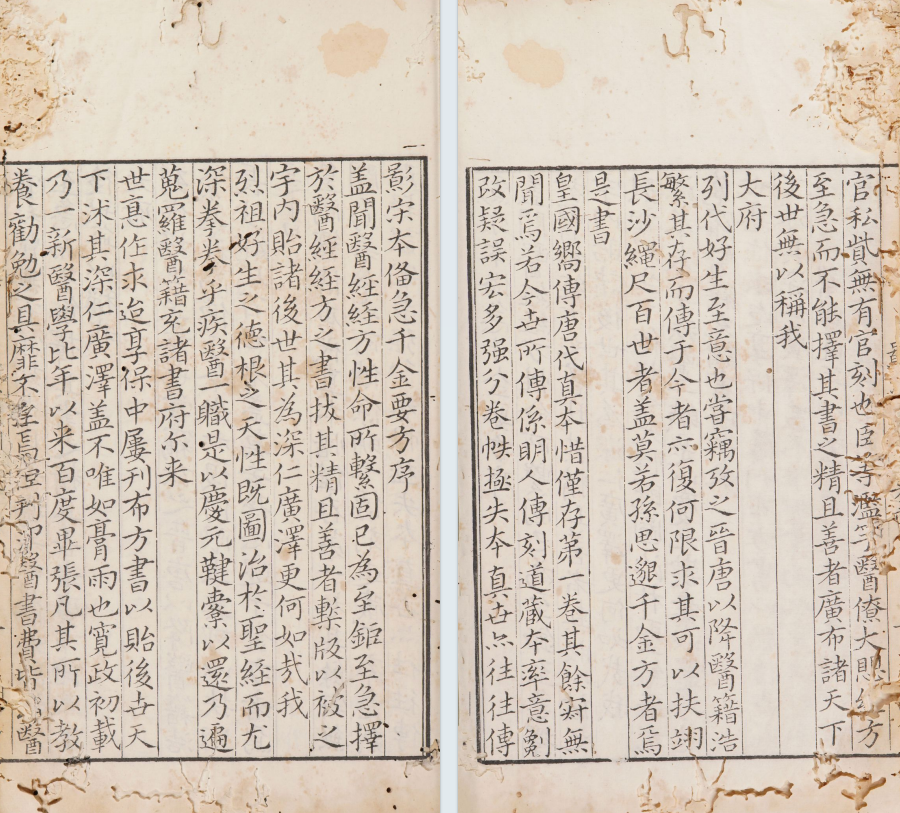 影宋本俻急千金要方序
蓋聞醫經經方性命所繫固已為至鉅至急擇
於醫經經方之書拔其精且善者槧版以被之
宇内貽諸後世其為深仁廣澤更何如哉我
烈祖好生之德根之天性既圖治於聖經而尤
深拳拳乎疾醫一職是以慶元鞬櫜以還乃遍
蒐羅醫籍充諸書府尓来
世憙作求迨享保中屢刊布方書以貽後世天
下沭其深仁廣澤蓋不唯如膏雨也寬政初載
乃一新醫學比年以来百度畢張凡其所以教
養勸勉之具靡不至焉但刊印醫書費皆醫
官私貲無有官刻也臣等濫竽醫僚大懼經方
至急而不能擇其書之精且善者廣布諸天下
後世無以稱我
大府
列代好生至意也嘗竊攷之晉唐以降醫籍浩
繁其存而傳于今者亦復何限求其可以扶翊
長沙繩尺百世者蓋莫若孫思邈千金方者焉
是書
皇國嚮傳唐代真本惜僅存第一卷其餘寂無
聞焉若今世所傳係明人傳刻道藏本率意劖
改疑誤宏多强分卷帙極失本真世亦往往傳